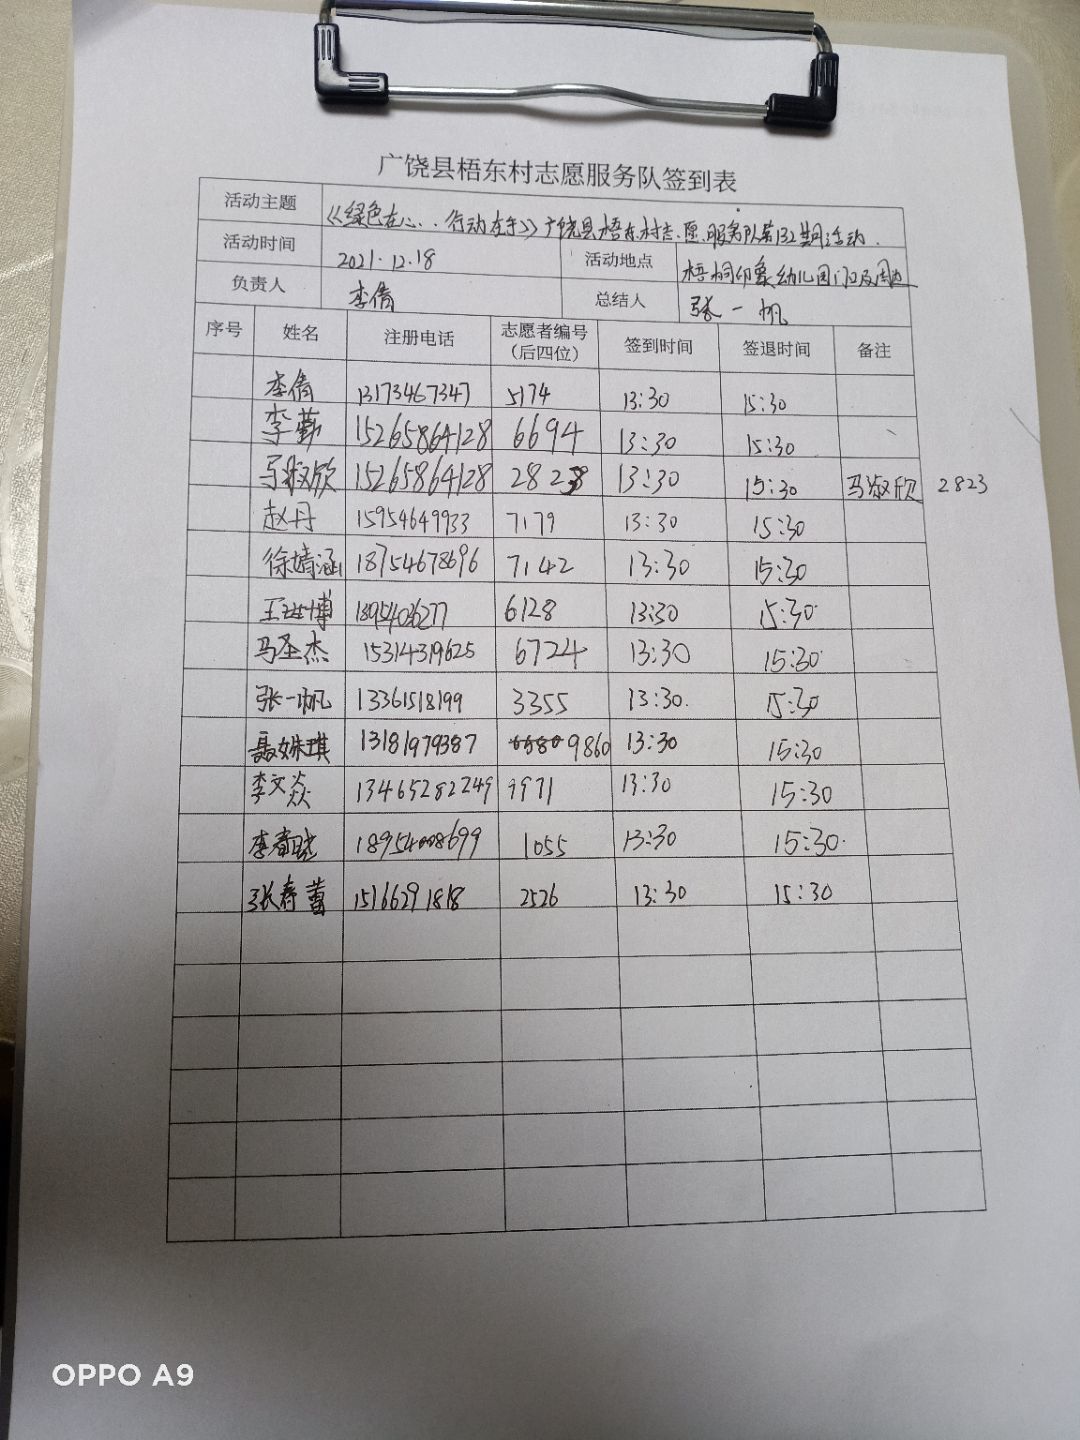 广饶县梧东村志愿服务队签到表
活动主题 《绿色在心、行动在手》广饶县梧东村志愿服务队第132期活动.
活动时间 2021.12.18 活动地点 梧桐印象幼儿园门口及周边
负责人 李倩 总结人 张一帆
序号 姓名 注册电话 志愿者编号(后四位) 签到时间 签退时间 备注
李倩 13173467347 5174 13:30 15:30
李勤 15265864128 6694 13:30 15:30
马淑欣 15265864128 2823 13:30 15:30 马淑欣 2823
赵丹 15954649933 7179 13:30 15:30
徐婧涵 18754678696 7142 13:30 15:30
王 博 6128 13:30 15:30
马圣杰 15314319625 6724 13:30 15:30
张一帆 13361518199 3355 13:30. 15:30
聂姝琪 13181979387 9860 13:30 15:30
李文焱 13465282249 9971 13:30 15:30
李春晓 18954008699 1055 13:30 15:30.
张春蕾 15166291818 2526 13:30 15:30
OPPO A9